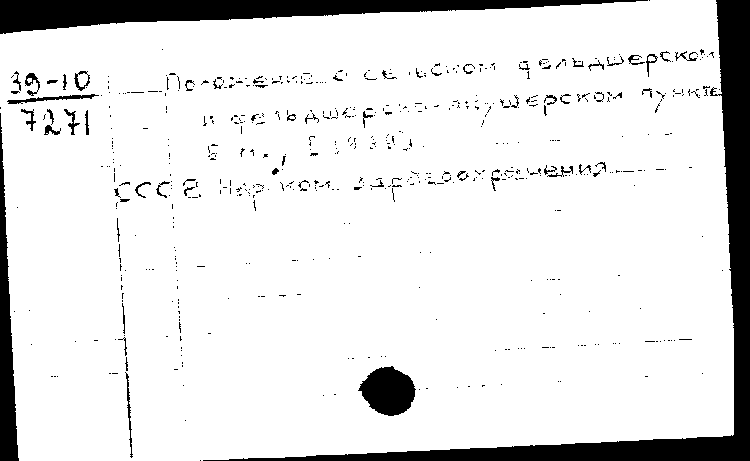 39-10
7271
Положение о сельском фельдшерском
и фельдшерско-акушерском пункте
Б м., [1939].
СССР Нар ком. здравоохранения